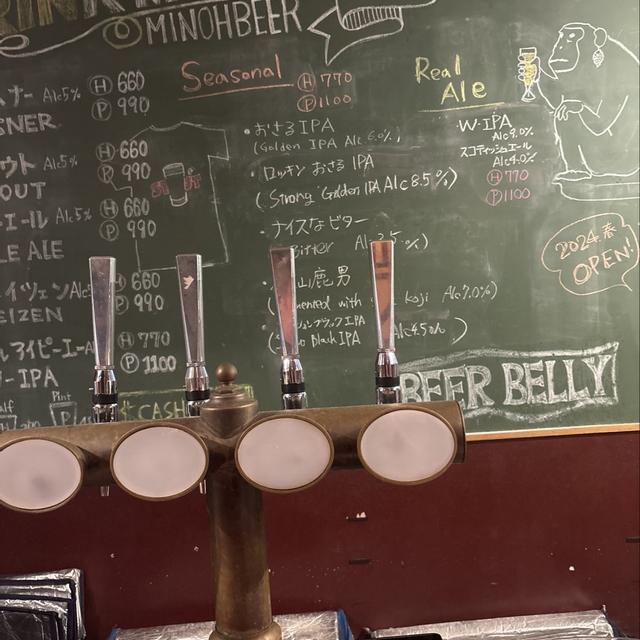 MINOHBEER
スナー Alc5% Ⓗ 660
Ⓟ 990
SNER
ウト Alc5% Ⓗ 660
OUT Ⓟ 990
エール Alc5% Ⓗ 660
LE ALE Ⓟ 990
イツェン Alc Ⓗ 660
EIZEN Ⓟ 990
アイピーエー Ⓗ 770
-IPA Ⓟ 1100
Pint
CASH
Seasonal Ⓗ 770
Ⓟ 1100
・おさるIPA
(Golden IPA Alc 6.0%)
・ロッキンおさるIPA
(Strong Golden IPA Alc 8.5%)
・ナイスなビター
Bitter
山鹿男
with koji Alc 7.0%)
ブラックIPA
Black IPA Alc4.5%)
Real
Ale
W-IPA
Alc9.0%
スコティッシュエール
Alc4.0%
Ⓗ 770
Ⓟ 1100
2024.春
OPEN!
BEER BELLY